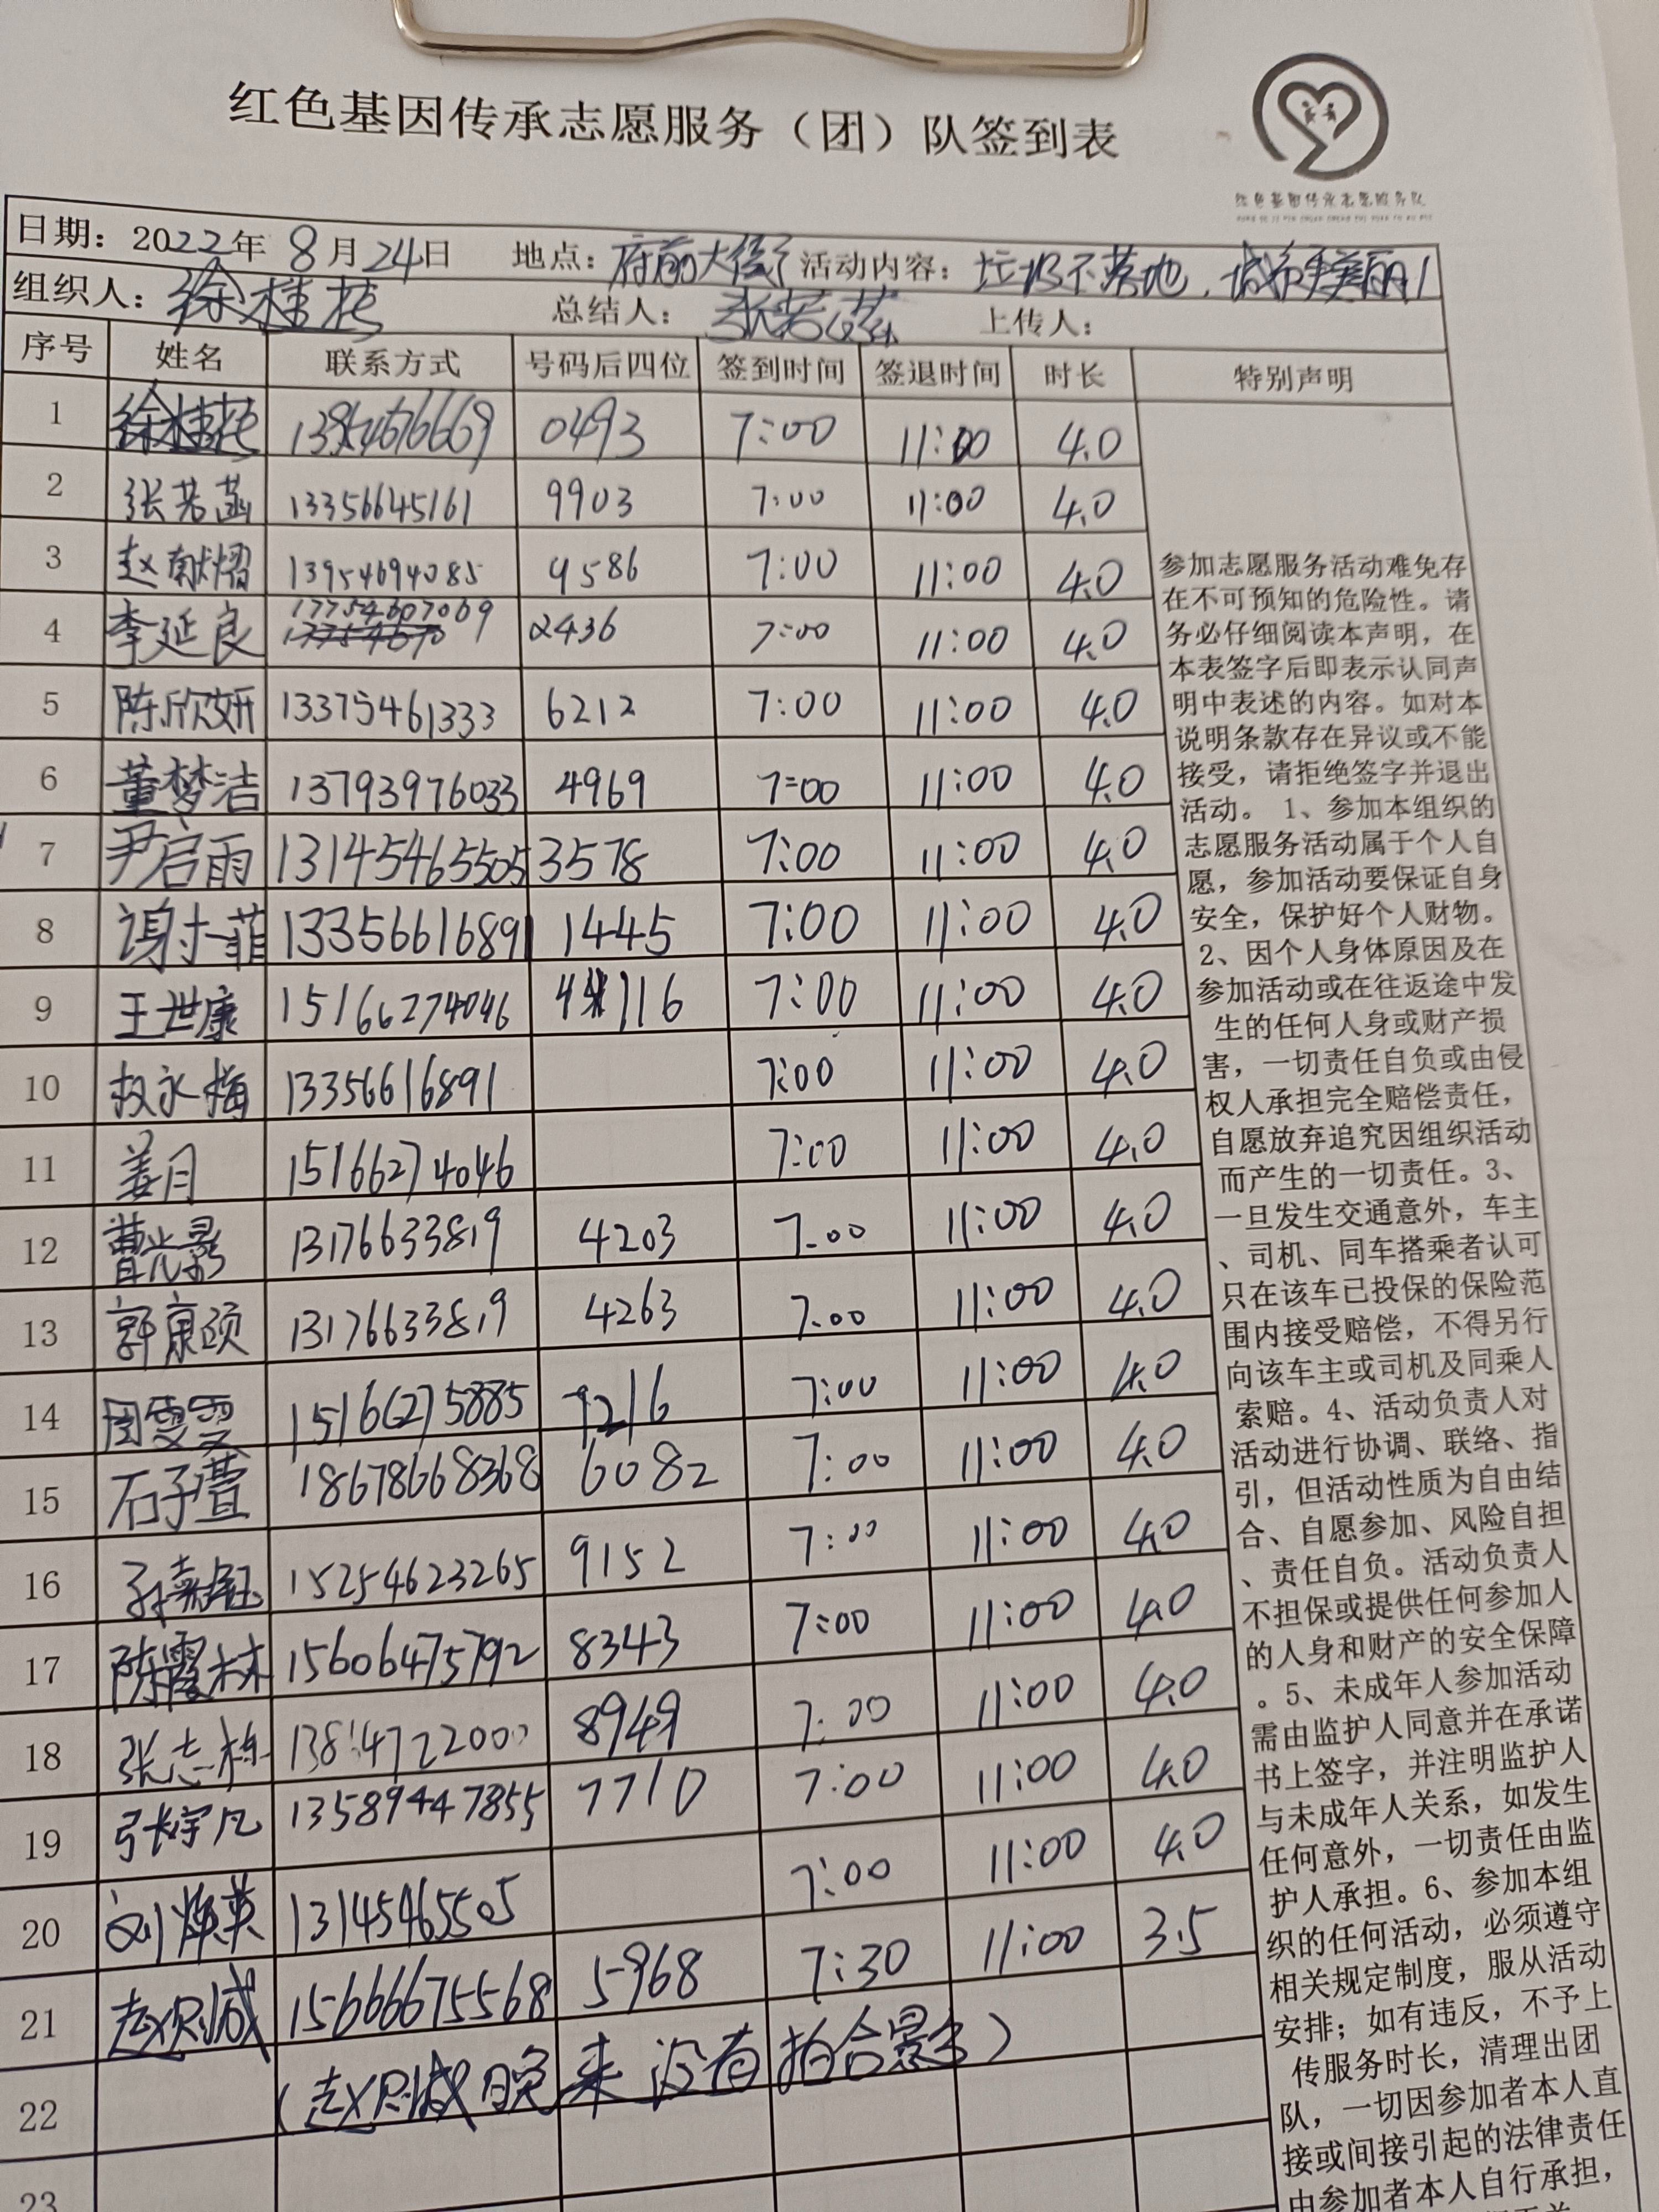 红色基因传承志愿服务（团）队签到表
红色基因传承志愿服务队
日期：2022年 8月24日 地点：府前大街 活动内容：垃圾不落地，城市更美丽！
组织人：徐桂花 总结人：张若菡 上传人：
序号 姓名 联系方式 号码后四位 签到时间 签退时间 时长 特别声明
1 徐桂花 0493 7:00 11:00 4.0
2 张若菡 13356645161 9903 7:00 11:00 4.0
3 赵献熠 13954694085 9586 7:00 11:00 4.0
4 李延良 17754607069 2436 7:00 11:00 4.0
5 陈欣妍 13375461333 6212 7:00 11:00 4.0
6 董梦洁 13793976033 4969 7:00 11:00 4.0
7 尹启雨 13145465505 3578 7:00 11:00 4.0
8 谢一菲 13356616891 1445 7:00 11:00 4.0
9 王世康 15166274046 7:00 11:00 4.0
10 永梅 13356616891 7:00 11:00 4.0
11 姜月 15166274046 7:00 11:00 4.0
12 曹光影 13176633819 4203 7:00 11:00 4.0
13 郭康颐 13176633819 4263 7:00 11:00 4.0
14 周雯雯 15166275885 7:00 11:00 4.0
15 石子萱 18678668368 6082 7:00 11:00 4.0
16 孙 15254623265 9152 7:00 11:00 4.0
17 陈霞林 15606475792 8343 7:00 11:00 4.0
18 张志栋 8949 7:00 11:00 4.0
19 张宇凡 13589447855 7710 7:00 11:00 4.0
20 刘 英 13145465505 7:00 11:00 4.0
21 赵则诚 15666675568 5968 7:30 11:00 3.5
22 （赵则诚晚来没有拍合影）
23
参加志愿服务活动难免存
在不可预知的危险性。请
务必仔细阅读本声明，在
本表签字后即表示认同声
明中表述的内容。如对本
说明条款存在异议或不能
接受，请拒绝签字并退出
活动。 1、参加本组织的
志愿服务活动属于个人自
愿，参加活动要保证自身
安全，保护好个人财物。
2、因个人身体原因及在
参加活动或在往返途中发
生的任何人身或财产损
害，一切责任自负或由侵
权人承担完全赔偿责任，
自愿放弃追究因组织活动
而产生的一切责任。3、
一旦发生交通意外，车主
、司机、同车搭乘者认可
只在该车已投保的保险范
围内接受赔偿，不得另行
向该车主或司机及同乘人
索赔。4、活动负责人对
活动进行协调、联络、指
引，但活动性质为自由结
合、自愿参加、风险自担
、责任自负。活动负责人
不担保或提供任何参加人
的人身和财产的安全保障
。5、未成年人参加活动
需由监护人同意并在承诺
书上签字，并注明监护人
与未成年人关系，如发生
任何意外，一切责任由监
护人承担。6、参加本组
织的任何活动，必须遵守
相关规定制度，服从活动
安排；如有违反，不予上
传服务时长，清理出团
队，一切因参加者本人直
接或间接引起的法律责任
由参加者本人自行承担，